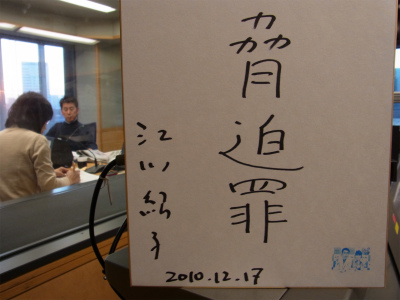 脅迫罪
江川紹子
2010.12.17